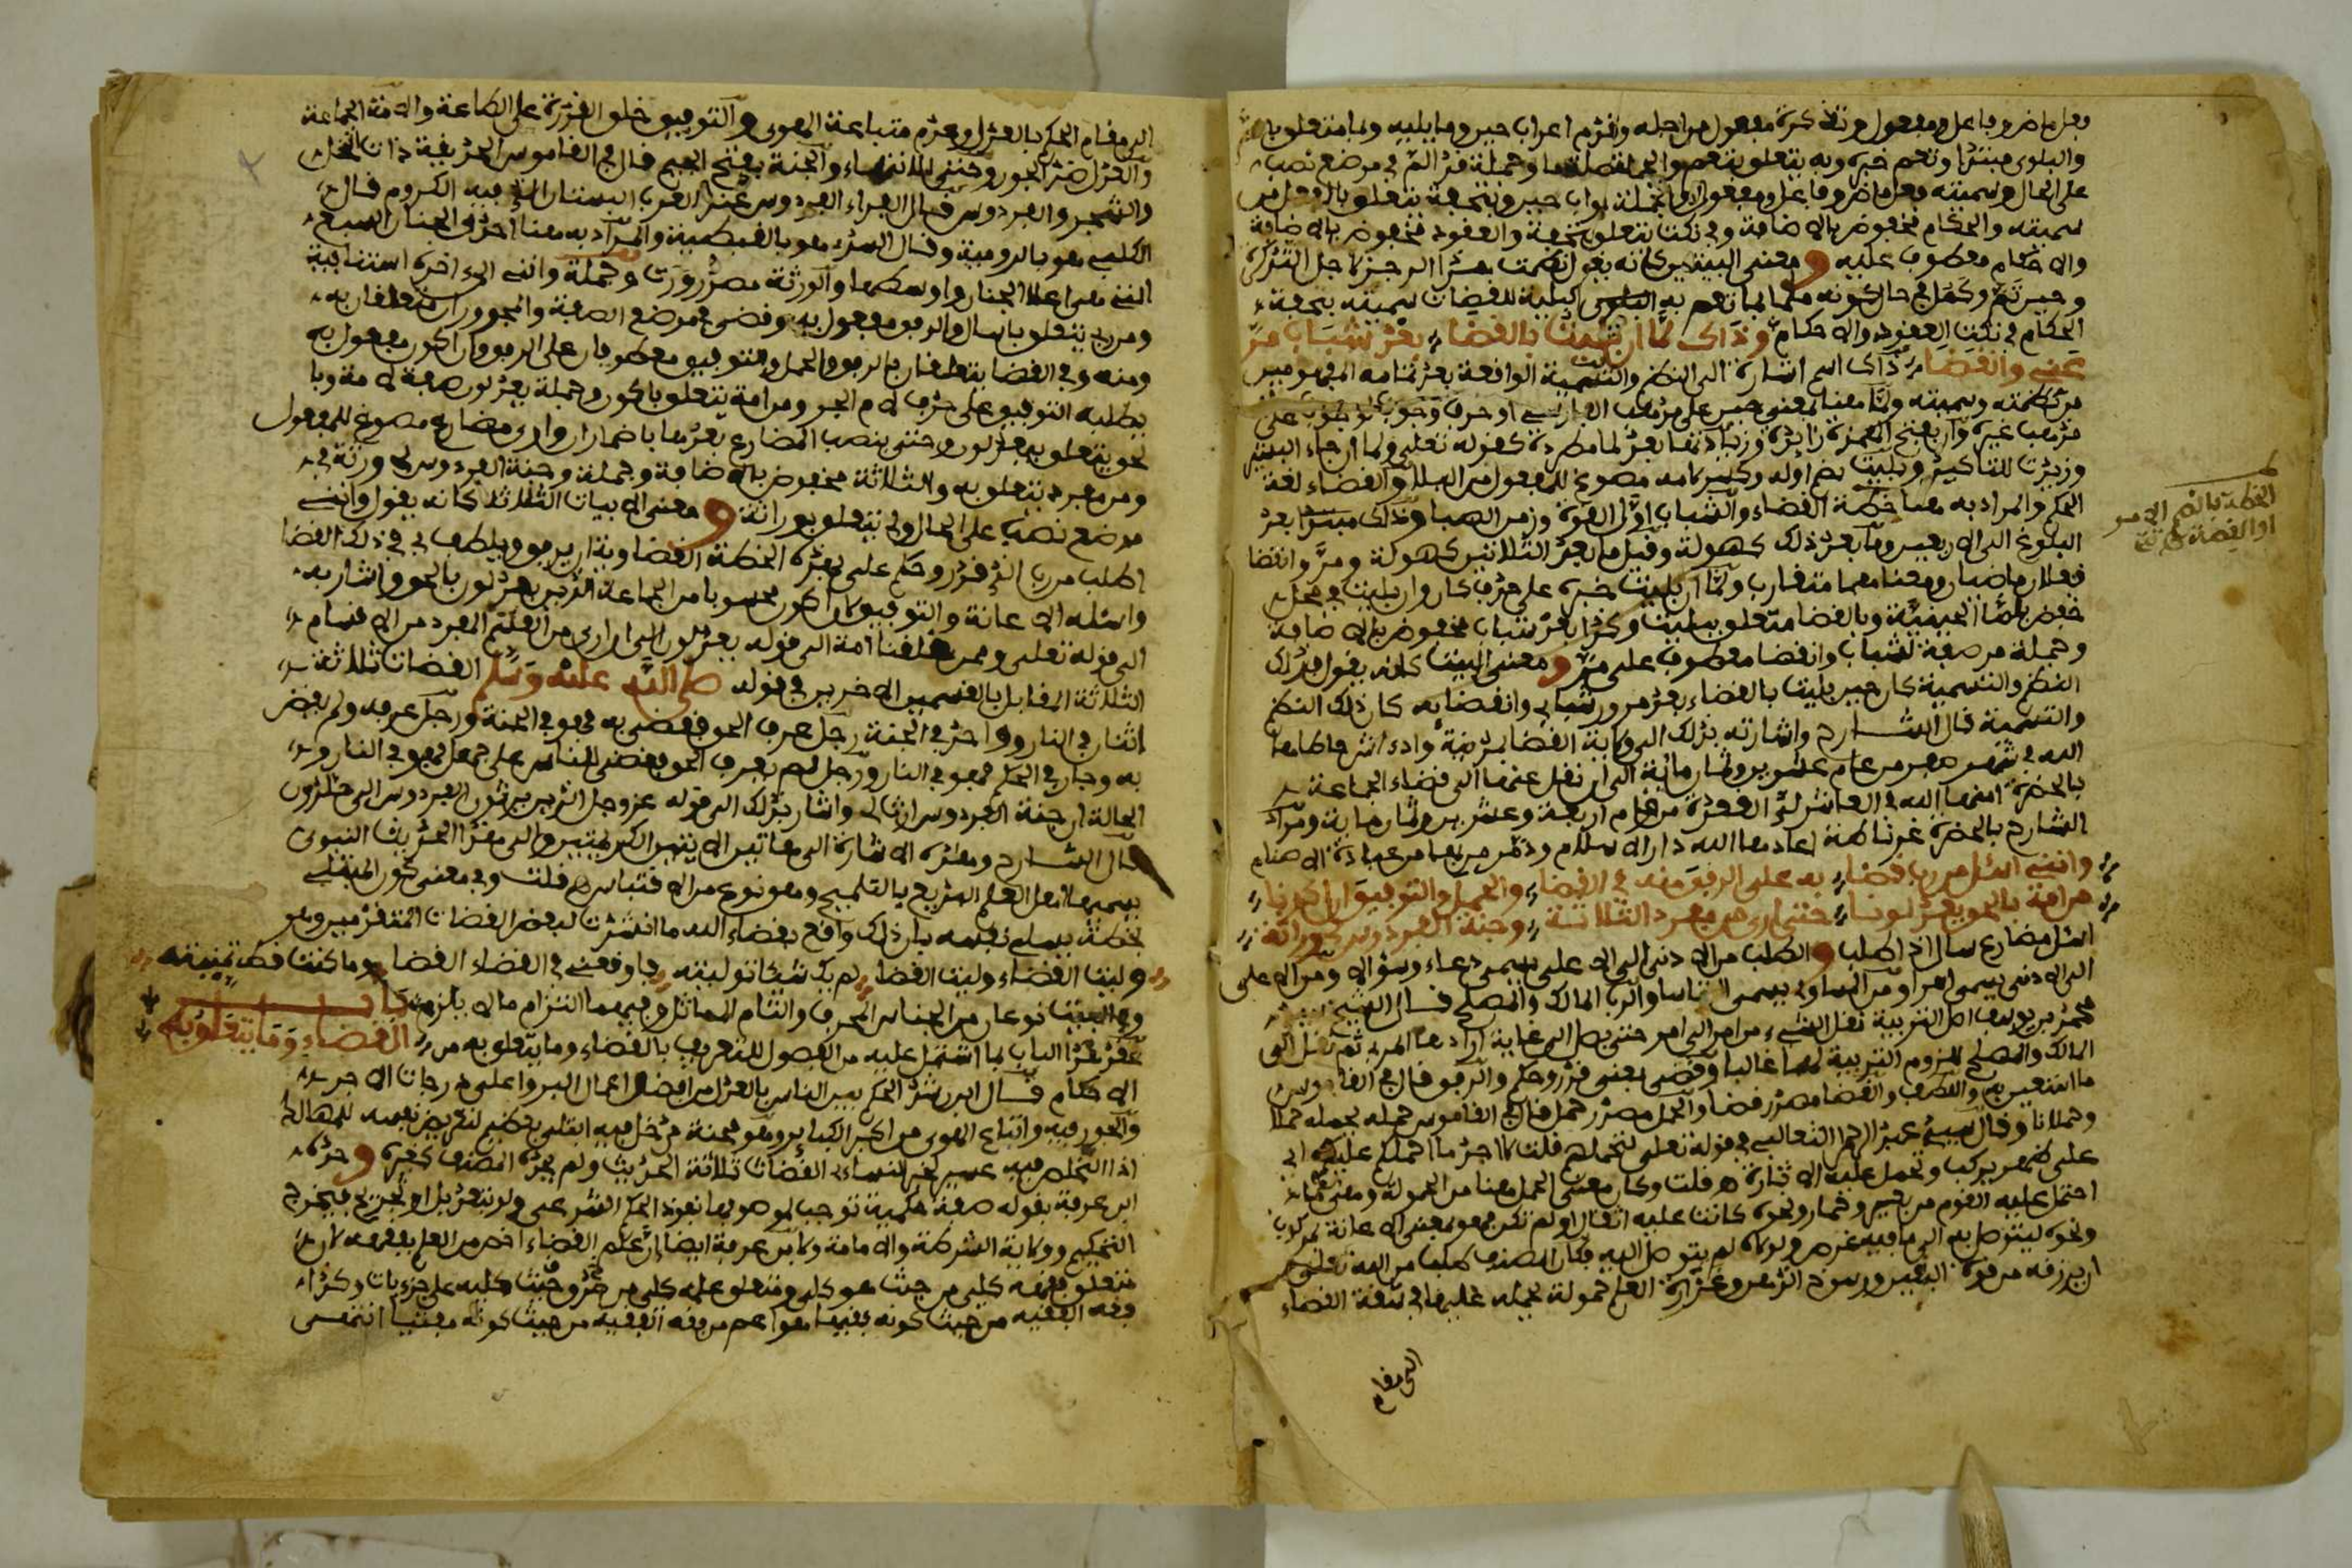 فعل ماض وفاعل ومفعول وتذكرة مفعول من اجله وتقدم اعراب حين وما يليه وبما متعلق بالعزم
والبلوى مبتدا وتعم خبره وبه يتعلق بتعم والجملة صلة ما وجملة قد الم في موضع نصب
على الحال وسميته فعل ماض وفاعل ومفعول اول والجملة جواب حين وبتحفة يتعلق بالفعل من
سميته والحكام مخفوض بالاضافة وفي نكت يتعلق بتحفة والعقود مخفوض بالاضافة
والاحكام معطوف عليه ومعنى البيتين كانه يقول نظمت هذا الرجز لاجل التذكرة
وحين تم وكمل في حال كونه ملما بما تعم به البلوى كبلية للقضاة سميته بتحفة
الحكام في نكت العقود والاحكام وذاك لما ان بليت بالقضا بعد شباب مر
عني وانقضا ذاك اسم اشارة الى النظم والتسمية الواقعة بعد تمامه المفهومين
من نظمته وسميته ولما معناها معنى حين على مذهب الفارسي او حرف وجوب لوجوب على
مذهب غيره وان بفتح الهمزة زائدة وزيادتها بعد لما مطردة كقوله تعلى ولما ان جاء البشير
وزيدت للتاكيد وبليت بضم اوله وكسر لامه مصوغ للمفعول من البلا والقضاء لغة
الحكم والمراد به هنا خطة القضاء والشباب اول القوة وزمن الصبا وذلك مبتدا بعد
البلوغ الى الاربعين وما بعد ذلك كهولة وقيل ما بعد الثلاثين كهولة ومر وانقضا
فعلان ماضيان ومعناهما متقارب ولما ان بليت خبره على حذف كان وان بليت في محل
خفض بلما الحينية وبالقضا متعلق ببليت وكذا بعد شباب مخفوض بالاضافة
وجملة مر صفة لشباب وانقضا معطوف على مر ومعنى البيت كانه يقول فذلك
النظم والتسمية كان حين بليت بالقضاء بعد مرور شبابي وانقضايه كان ذلك النظم
والتسمية قال الشارح واشارته بذلك الى ولاية القضا بمدينة وادي اش حاطها
الله في شهر صفر من عام عشرين وثمانماية الى ان نقل عنها الى قضاء الجماعة
بالحضرة امنها الله في العاشر لذي القعدة من عام اربعة وعشرين وثمانماية ومراد
الشارح بالحضرة غرناطة اعادها الله دار الاسلام وطهرها من عبادة الاصنام
وانني اسئل من رب قضا به على الرفق منه في القضا والحمل والتوفيق ان اكون
من امة بالحق يعدلونا حتى ارى من مفرد الثلاثة وجنة الفردوس لي وراثة
اسئل مضارع سال اذا طلب والطلب من الادنى الى الاعلى يسمى دعاء وسؤالا ومن الاعلى
الى الادنى يسمى امرا ومن المساوي يسمى التماسا والرب المالك والمصلح قال الشيخ
محمد بن يوسف اصل التربية نقل الشيء من امر الى امر حتى يصل الى غاية ارادها المربي ثم نقل الى
المالك والمصلح للزوم التربية لهما غالبا وقضى بمعنى قدر وحكم والرفق قال في القاموس
ما استعين به واللطف والقضا مصدر قضا والحمل مصدر حمل قال في القاموس حمله يحمله حملا
وحملانا وقال سيدي عبد الرحمن الثعالبي في قوله تعلى لتحملهم قلت لا اجد ما احملكم عليه اي
على ظهر يركب ويحمل عليه الاثاث اه قلت وكان معنى الحمل هنا من الحمولة وهي ما
احتمل عليه القوم من بعير وحمار ونحوه كانت عليه اثقال او لم تكن فهو بمعنى الاعانة لمركوب
ونحوه ليتوصل به الى ما فيه غرض ولولاه لم يتوصل اليه فكان المصنف طلب من الله تعلى
ان يرزقه من قوة اليقين ورسوخ الذهن وغزارة العلم حمولة يحمله عليها في مشقة القضاء
الى مقام
الخطة بالضم الامر
او القصة
الى مقام الحكم بالعدل وعدم متابعة الهوى والتوفيق خلق القدرة على الطاعة والامة الجماعة
والعدل ضد الجور وحتى للانتهاء والجنة بفتح الجيم قال في القاموس الحديقة ذات النخل
والشجر والفردوس قال الفراء الفردوس عند العرب البستان الذي فيه الكروم قال
الكلبي هو بالرومية وقال السدي هو بالقبطية والمراد به هنا احدى الجنان السبع
التي هي اعلا الجنان واوسطها والوراثة مصدر ورث وجملة وانني الى اخره استئنافية
ومن رب يتعلق باسال والرفق مفعول به وقضى في موضع الصفة والمجروران متعلقان به
ومنه وفي القضا يتعلقان بالرفق والحمل والتوفيق معطوفان على الرفق وان اكون مفعول به
بطلبه التوفيق على حذف لام الجر ومن امة يتعلق باكون وجملة يعدلون صفة لامة وبا
لحق يتعلق بيعدلون وحتى ينصب المضارع بعدها باضمار ان وارى مضارع مصوغ للمفعول
ومن مفرد يتعلق به والثلاثة مخفوض بالاضافة وجملة وجنة الفردوس لي وراثة في
موضع نصب على الحال ولي يتعلق بوراثة ومعنى الابيات الثلاثة كانه يقول وانني
اطلب من رب الذي قدر وحكم علي بهذه الخطة القضاوية ان يرفق ويلطف بي في ذلك القضا
واسئله الاعانة والتوفيق لان اكون محسوبا من الجماعة الذين يعدلون بالحق واشار به
الى قوله تعلى وممن خلقنا امة الى قوله يعدلون الى ان ارى من القسم المفرد من الاقسام
الثلاثة المقابل بالقسمين الاخرين في قوله صلى الله عليه وسلم القضاة ثلاثة
اثنان في النار وواحد في الجنة رجل عرف الحق فقضى به فهو في الجنة ورجل عرفه ولم يقض
به وجار في الحكم فهو في النار ورجل لم يعرف الحق فقضى للناس على جهل فهو في النار و
الحالة ان جنة الفردوس ارث لي واشار بذلك الى قوله عز وجل الذين يرثون الفردوس الى خالدون
قال الشارح وهذه الاشارة الى هاتين الايتين الكريمتين والى هذا الحديث النبوي
يسميها اهل العلم البديع بالتلميح وهو نوع من الاقتباس اه قلت وفي معنى كون المبتلى
بخطة يبلى نفسه بان ذلك واقع بقضاء الله ما انشدت لبعض القضاة المتقدمين وهو
وليت القضاء وليت القضا لم يك شيئا توليته فاوقعني في القضاء القضا وما كنت قط تمنيته
وفي البيت نوعان من الجناس المحرف والتام المماثل وفيهما التزام ما لا يلزم باب
القضاء وما يتعلق به عقد هذا الباب لما اشتمل عليه من الفصول للتعريف بالقضاء وما يتعلق به من
الاحكام قال ابن رشد الحكم بين الناس بالعدل من افضل اعمال البر واعلى درجات الاجر
والجور فيه واتباع الهوى من اكبر الكبائر وهو محنة من دخل فيه ابتلي بعظيم لتعريض نفسه للهلاك
اذا التخلص فيه عسير
ابن عرفة بقوله صفة حكمية توجب لموصوفها نفوذ الحكم الشرعي ولو بتعديل او تجريح فيخرج
التحكيم وولاية الشرطة والامامة ولابن عرفة ايضا ان علم القضاء اخص من العلم بفقهه لان
متعلق فقهه كلي من حيث هو كلي ومتعلق علمه كلي من حيث صدق كليه على جزءيات وكذا
فقه الفقيه من حيث كونه فقيها هو اعم من فقه الفقيه من حيث كونه مفتيا انتهى